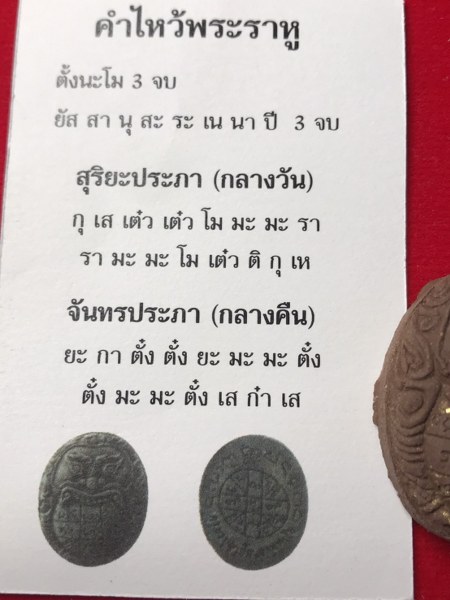 คำไหว้พระราหู
ตั้งนะโม 3 จบ
ยัส สา นุ สะ ระ เน นา ปี 3 จบ
สุริยะประภา (กลางวัน)
กุ เส เต๋ว เต๋ว โม มะ มะ รา
รา มะ มะ โม เต๋ว ติ กุ เห
จันทรประภา (กลางคืน)
ยะ กา ตั๋ง ตั๋ง ยะ มะ มะ ตั๋ง
ตั๋ง มะ มะ ตั๋ง เส ก๋า เส